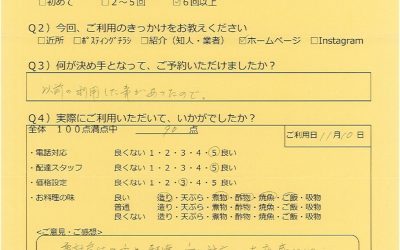 □初めて □2～5回 ☑6回以上
Q2）今回、ご利用のきっかけをお教えください
□近所 □ﾎﾟｽﾃｨﾝｸﾞﾁﾗｼ □紹介（知人・業者） ☑ホームページ □Instagram
Q3）何が決め手となって、ご予約いただけましたか？
以前の利用した事があったので。
Q4）実際にご利用いただいて、いかがでしたか？
全体 100点満点中 90 点
ご利用日 11月10日
・電話対応 良くない 1・2・3・4・5 良い
・配達スタッフ 良くない 1・2・3・4・5 良い
・価格設定 良くない 1・2・3・4・5 良い
・お料理の味 良い 造り・天ぷら・煮物・酢物・焼魚・ご飯・吸物
普通 造り・天ぷら・煮物・酢物・焼魚・ご飯・吸物
良くない 造り・天ぷら・煮物・酢物・焼魚・ご飯・吸物
＜ご意見・ご感想＞